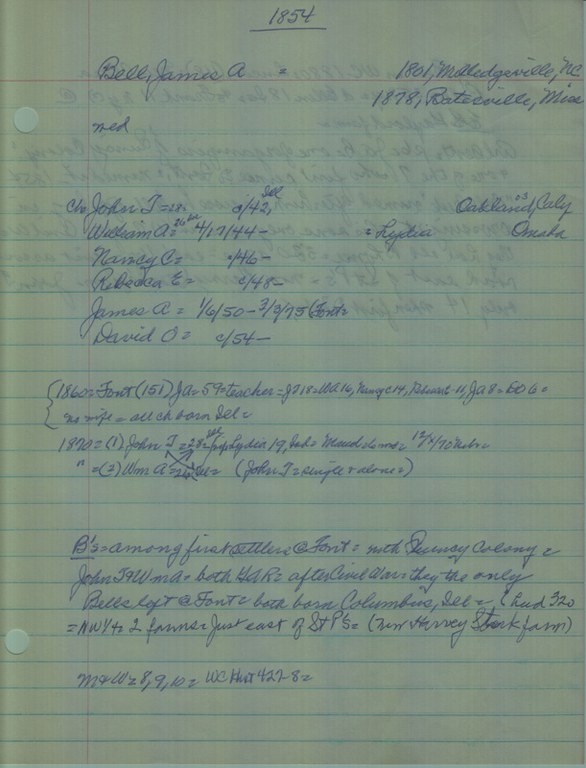 1854
Bell, James A = 1801, Milledgeville, NC
1878, Batesville, Miss
med
Ch= John T= 28. c/42, Ill Oakland, Caly
William A= 4/17/44- = Lydia Omaha
Nancy C= c/46-
Rebecca E= c/48-
James A= 1/6/50 - 3/9/75 (Font=
David O= c/54-
1860= Font (151) Ja= 59= teacher= JT 18= WA 16, Nancy 14, 11, Ja 8= DO 6=
no wife= all ch born Ill=
1870= (1) John T = 28= Lydia 19, Ind= Maud 6 mo=
" = (2) Wm A= (John T= single & alone=)
B's= among first settlers @ Font= with Quincy Colony=
John T & Wm A= both GAR= after Civil War= they the only
Bells left @ Font= both born Columbus, Ill= (had 320
= NW 4= 2 farms= just east of St P's= (now Harvey Stork farm)
M&W= 8, 9, 10= WC Hist 427-8=